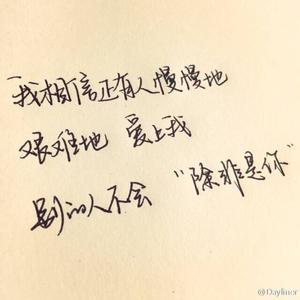 我相信还有人慢慢地
艰难地 爱上我
别的人不会 “除非是你”
@Dayliner